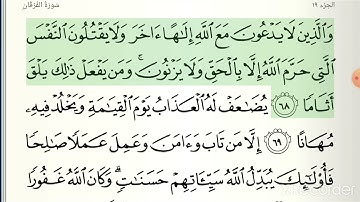 الجزء ١٩
سورة الفرقان
وَالَّذِينَ لَا يَدْعُونَ مَعَ اللَّهِ إِلَٰهًا ءَاخَرَ وَلَا يَقْتُلُونَ النَّفْسَ
الَّتِي حَرَّمَ اللَّهُ إِلَّا بِالْحَقِّ وَلَا يَزْنُونَ ۚ وَمَن يَفْعَلْ ذَٰلِكَ يَلْقَ
أَثَامًا ٦٨ يُضَٰعَفْ لَهُ الْعَذَابُ يَوْمَ الْقِيَٰمَةِ وَيَخْلُدْ فِيهِ
مُهَانًا ٦٩ إِلَّا مَن تَابَ وَءَامَنَ وَعَمِلَ عَمَلًا صَٰلِحًا
فَأُولَٰئِكَ يُبَدِّلُ اللَّهُ سَيِّـَٔاتِهِمْ حَسَنَٰتٍ ۗ وَكَانَ اللَّهُ غَفُورًا